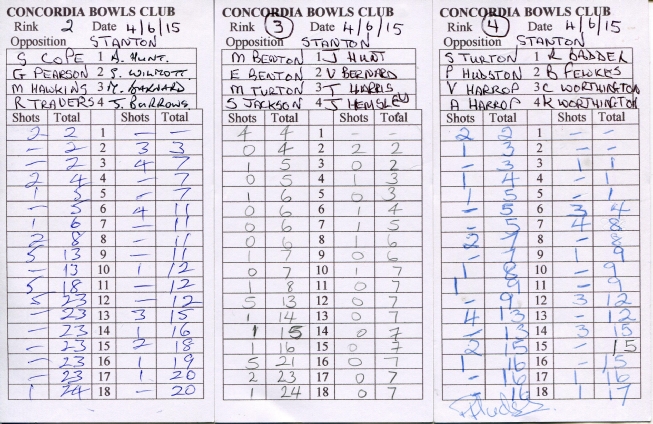 CONCORDIA BOWLS CLUB
Rink 2 Date 4/6/15
Opposition STANTON
S COPE 1 A. HUNT.
G PEARSON 2 S. WILMOTT.
M HAWKINS 3
R TRAVERS 4 J. BURROWS.
Shots Total Shots Total
2 2 1 — —
— 2 2 3 3
— 2 3 4 7
2 4 4 — 7
1 5 5 — 7
— 5 6 4 11
1 6 7 — 11
2 8 8 — 11
5 13 9 — 11
— 13 10 1 12
5 18 11 — 12
5 23 12 — 12
— 23 13 3 15
— 23 14 1 16
— 23 15 2 18
— 23 16 1 19
— 23 17 1 20
1 24 18 — 20
CONCORDIA BOWLS CLUB
Rink 3 Date 4/6/15
Opposition STANTON
M BENTON 1 J HUNT
E BENTON 2 V BERNARD
M TURTON 3 T HARRIS
S JACKSON 4 J HEMSLEY
Shots Total Shots Total
4 4 1 - -
0 4 2 2 2
1 5 3 0 2
0 5 4 1 3
1 6 5 0 3
0 6 6 1 4
0 6 7 1 5
0 6 8 1 6
1 7 9 0 6
0 7 10 1 7
1 8 11 0 7
5 13 12 0 7
1 14 13 0 7
1 15 14 0 7
1 16 15 0 7
5 21 16 0 7
2 23 17 0 7
1 24 18 0 7
CONCORDIA BOWLS CLUB
Rink 4 Date 4/6/15
Opposition STANTON
S TURTON 1 R BADDER
P HUDSTON 2 B FEWKES
V HARROP 3 C WORTHINGTON
A HARROP 4 K WORTHINGTON
Shots Total Shots Total
2 2 1 - -
1 3 2 - -
- 3 3 1 1
1 4 4 - 1
1 5 5 - 1
- 5 6 3 4
- 5 7 4 8
2 7 8 - 8
- 7 9 1 9
1 8 10 - 9
1 9 11 - 9
- 9 12 3 12
4 13 13 - 12
- 13 14 3 15
2 15 15 - 15
1 16 16 - 15
- 16 17 1 16
- 16 18 1 17